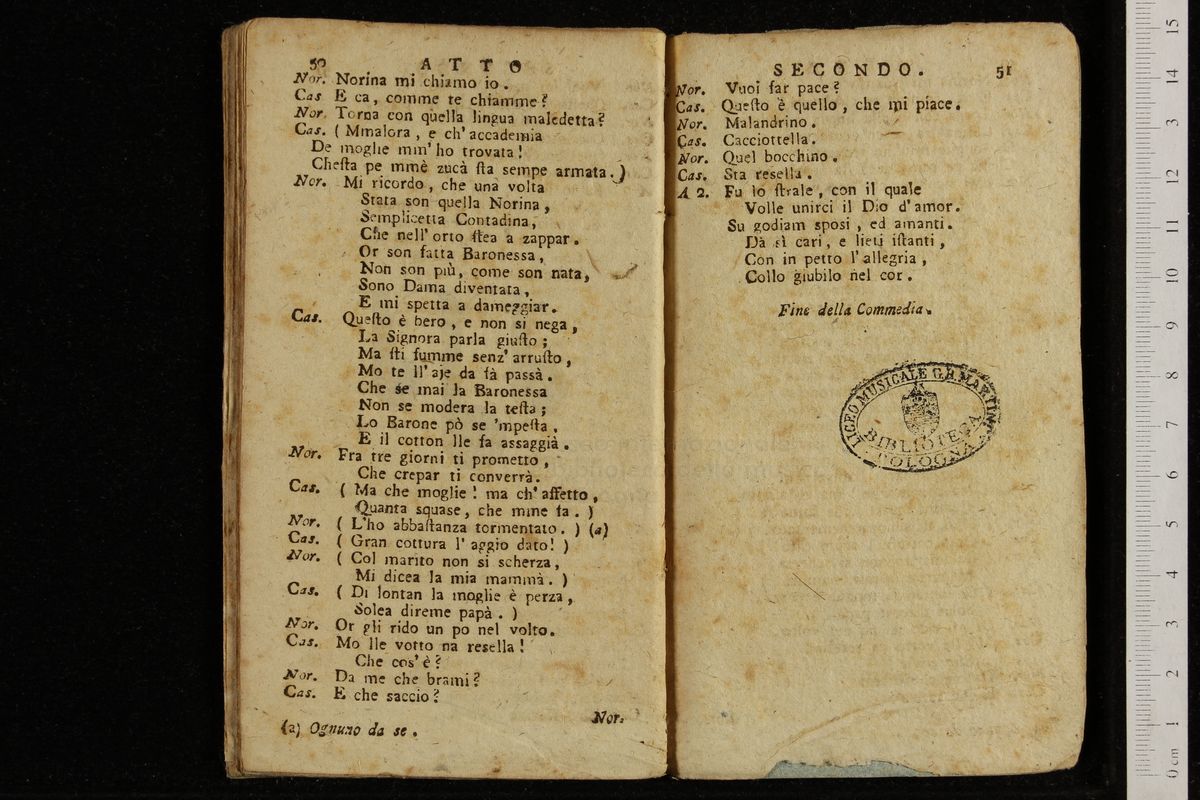 50 ATTO
Nor. Norina mi chiamo io.
Cas E ca, comme te chiamme?
Nor. Torna con quella lingua maledetta?
Cas. ( Mmalora, e ch' accademia
De moglie mm' ho trovata!
Chesta pe mmè zucà sta sempe armata. )
Nor. Mi ricordo, che una volta
Stata son quella Norina,
Semplicetta Contadina,
Che nell' orto stea a zappar.
Or son fatta Baronessa,
Non son più, come son nata,
Sono Dama diventata,
E mi spetta a dameggiar.
Cas. Questo è bero, e non si nega,
La Signora parla giusto;
Ma sti fumme senz' arrusto,
Mo te ll' aje da fà passà.
Che se mai la Baronessa
Non se modera la testa;
Lo Barone pò se 'mpesta,
E il cotton lle fa assaggià.
Nor. Fra tre giorni ti prometto,
Che crepar ti converrà.
Cas. ( Ma che moglie! ma ch' affetto,
Quanta squase, che mme fa. )
Nor. ( L'ho abbastanza tormentato. ) (a)
Cas. ( Gran cottura l' aggio dato! )
Nor. ( Col marito non si scherza,
Mi dicea la mia mammà. )
Cas. ( Di lontan la moglie è perza,
Solea direme papà. )
Nor. Or gli rido un po nel volto.
Cas. Mo lle votto na resella!
Che cos' è?
Nor. Da me che brami?
Cas. E che saccio?
Nor.
(a) Ognuno da se.
SECONDO. 51
Nor. Vuoi far pace?
Cas. Questo è quello, che mi piace.
Nor. Malandrino.
Cas. Cacciottella.
Nor. Quel bocchino.
Cas. Sta resella.
A 2. Fu lo strale, con il quale
Volle unirci il Dio d' amor.
Su godiam sposi, ed amanti.
Dà sì cari, e lieti istanti,
Con in petto l' allegria,
Collo giubilo nel cor.
Fine della Commedia.
LICEO MUSICALE G.B. MARTINI
BIBLIOTECA
BOLOGNA
0 cm 1 2 3 4 5 6 7 8 9 10 11 12 3 14 15